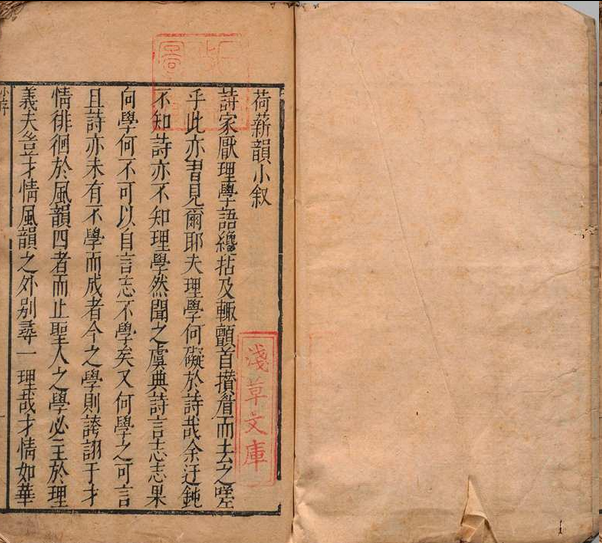 荷薪韻小叙
詩家厭理學語纔拈及輒首攢眉而去之嗟
乎此亦見爾耶夫理學何礙於詩哉余迂鈍
不知詩亦不知理學然聞之虞典詩言志志果
向學何不可以自言志不學矣又何學之可言
且詩亦未有不學而成者今之學則誇詡于才
情徘徊於風韻四者而止聖人之學必主於理
義夫豈才情風韻之外別尋一理哉才情如華
小序
淺草文庫
1